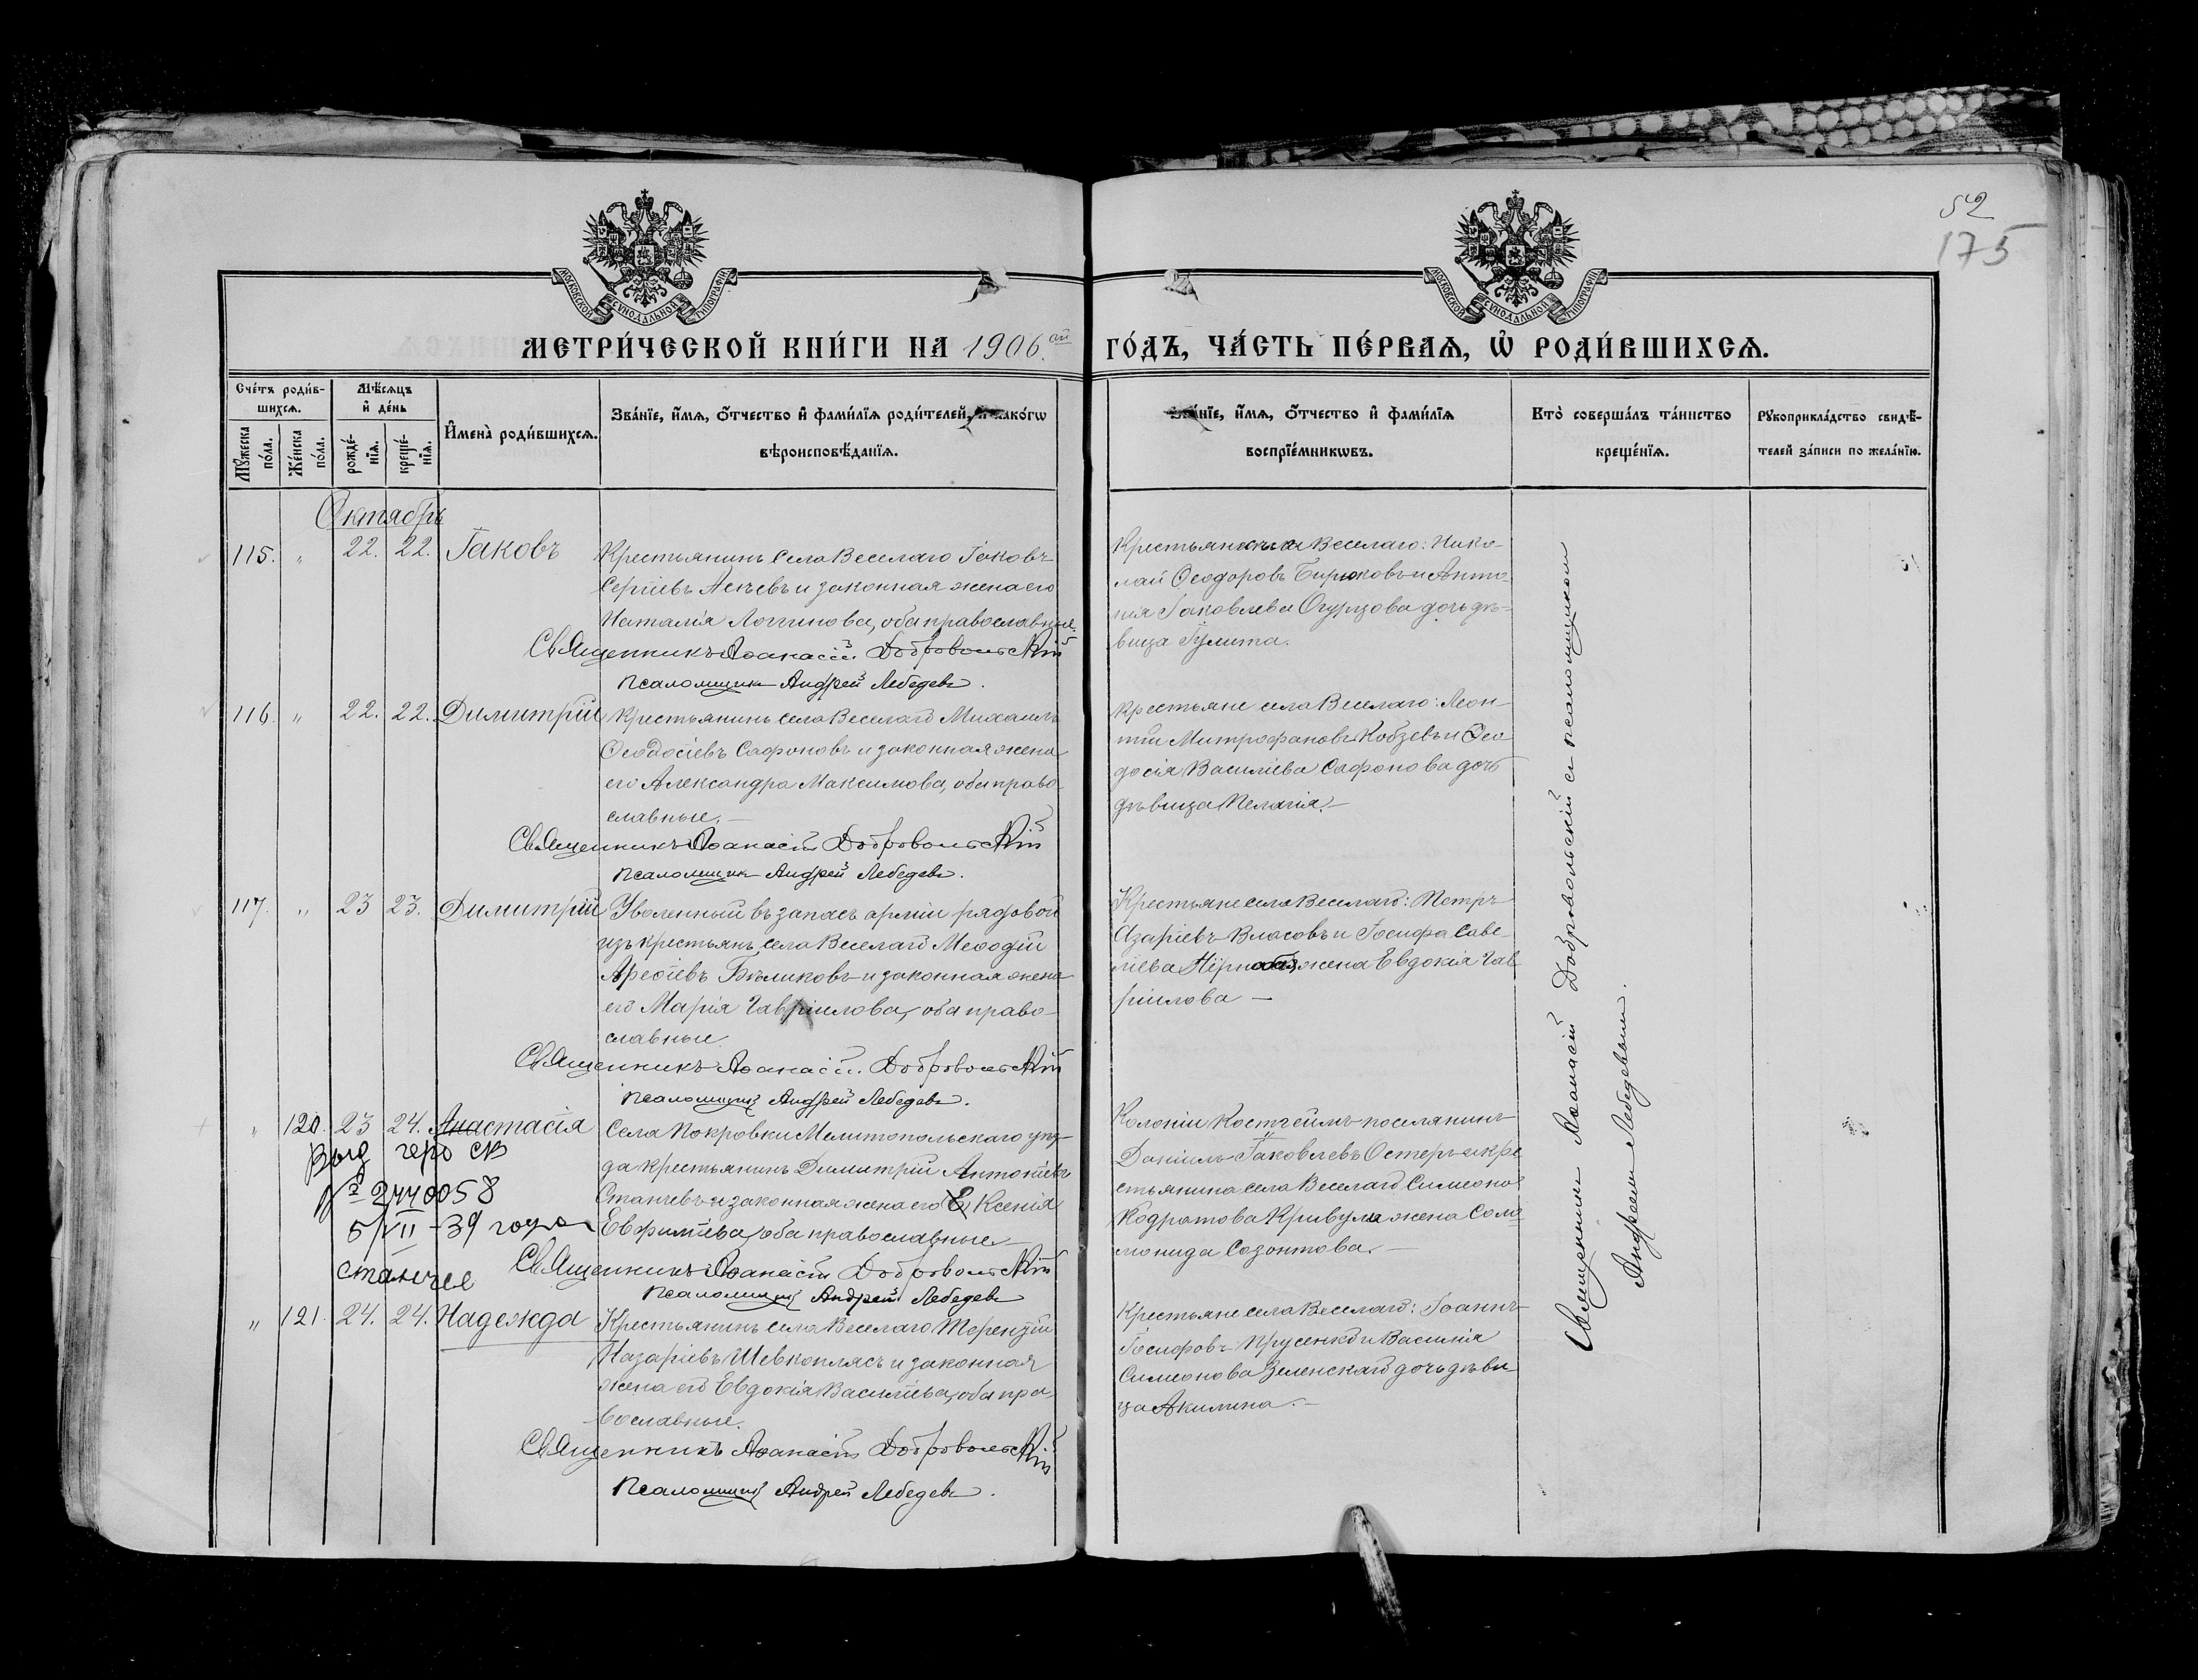 52
175
МОСКОВСКОЙ СѴНОДАЛЬНОЙ ТИПОГРАФІИ
МОСКОВСКОЙ СѴНОДАЛЬНОЙ ТИПОГРАФІИ
МЕТРИ́ЧЕСКОЙ КНИ́ГИ НА 1906.ой
ГО́ДЪ, ЧА́СТЬ ПЕ́РВАѦ, Ѡ҆ РОДИ́ВШИХСѦ.
Сче́тъ роди́в-
шихсѧ.
Мꙋ́жеска по́ла.
Же́нска по́ла.
Мѣ́сѧцъ и҆ де́нь
рожде́-
нїѧ.
креще́-
нїѧ.
И҆мена̀ роди́вшихсѧ.
Зва́нїе, и҆́мѧ, ѻ҆́тчество и҆ фами́лїѧ роди́телей, и҆ како́гѡ
вѣроисповѣ́данїѧ.
Зва́нїе, и҆́мѧ, ѻ҆́тчество и҆ фами́лїѧ
воспрїе́мникѡвъ.
Кто̀ соверша́лъ та́инство
креще́нїѧ.
Рꙋкоприкла́дство свидѣ́-
телей за́писи по жела́нїю.
Октябрь
115. „ 22. 22. Іаковъ
Крестьянинъ села Веселаго Іаковъ
Сергіевъ и законная жена его
Наталія Логгинова, оба православные.
Священникъ Аѳанасій Добровольскій
Псаломщикъ Андрей Лебедевъ.
Крестьяне села Веселаго: Нико-
лай Ѳеодоровъ Бирюковъ и Анто-
нія Іаковлева Огурцова дочь дѣ-
вица Іулита.
116. „ 22. 22. Димитрій
Крестьянинъ села Веселаго Михаилъ
Ѳеодосіевъ Сафоновъ и законная жена
его Александра Максимова, оба право-
славные.
Священникъ Аѳанасій Добровольскій
Псаломщикъ Андрей Лебедевъ.
Крестьяне села Веселаго: Леон-
тій Митрофановъ Кобзевъ и Ѳео-
досія Василіева Сафонова дочь
дѣвица Пелагія.
117. „ 23 23. Димитрій
Уволенный въ запасъ арміи рядовой
изъ крестьянъ села Веселаго Меѳодій
Арефіевъ Бѣликовъ и законная жена
его Марія Гавріилова, оба право-
славные.
Священникъ Аѳанасій Добровольскій
Псаломщикъ Андрей Лебедевъ.
Крестьяне села Веселаго: Петръ
Азаріевъ Власовъ и Іосифа Саве-
ліева жена Евдокія Гав-
ріилова
„ 120. 23 24. Анастасія
Села Покровки Мелитопольскаго уѣз-
да крестьянинъ Димитрій Антоніевъ
Станчевъ и законная жена его Ксенія
Евфиміева, оба православные
Священникъ Аѳанасій Добровольскій
Псаломщикъ Андрей Лебедевъ
Выд герб св
№ 2440058
5/VII-39 года
Колоніи Костгеймъ поселянинъ
Даніилъ Іаковлевъ Остеръ и кре-
стьянина села Веселаго Симеона
Кодратова Кривуля жена Соло-
монида Созонтова.
„ 121. 24. 24. Надежда
Крестьянинъ села Веселаго Терентій
Назаріевъ Шевкоплясъ и законная
жена его Евдокія Василіева, оба пра-
вославные.
Священникъ Аѳанасій Добровольскій
Псаломщикъ Андрей Лебедевъ.
Крестьяне села Веселаго: Іоаннъ
Іосифовъ Прусенко и Василія
Симеонова Зеленскаго дочь дѣви-
ца Акилина.
Священникъ Аѳанасій Добровольскій съ псаломщикомъ
Андреемъ Лебедевымъ.